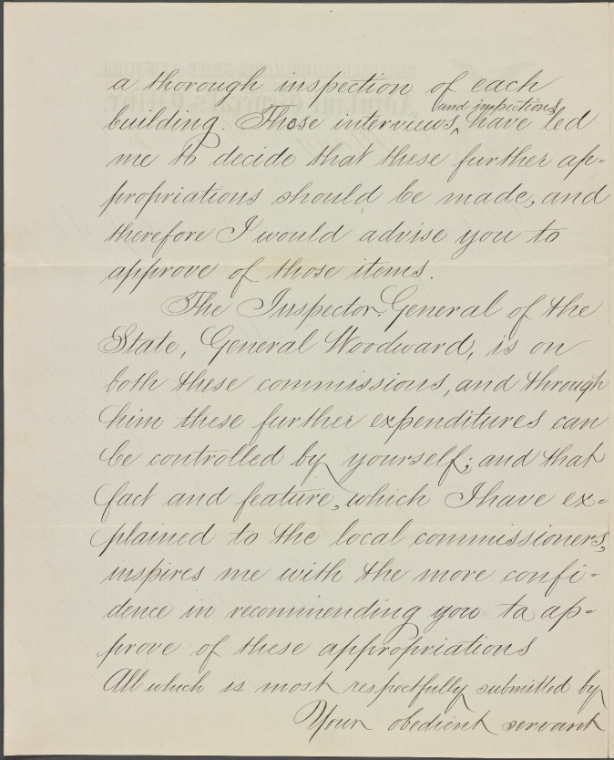 a thorough inspection of each
and inspections
building. Those interviews, ‸ have led
me to decide that these further ap-
propriations should be made, and
therefore I would advise you to
approve of those items.
The Inspector General of the
State, General Woodward, is on
both these commissions, and through
him these further expenditures can
be controlled by yourself; and that
fact and feature, which I have ex-
plained to the local commissioners,
inspires me with the more confi-
dence in recommending you to ap-
prove of these appropriations
All which is most respectfully submitted by
Your obedient servant